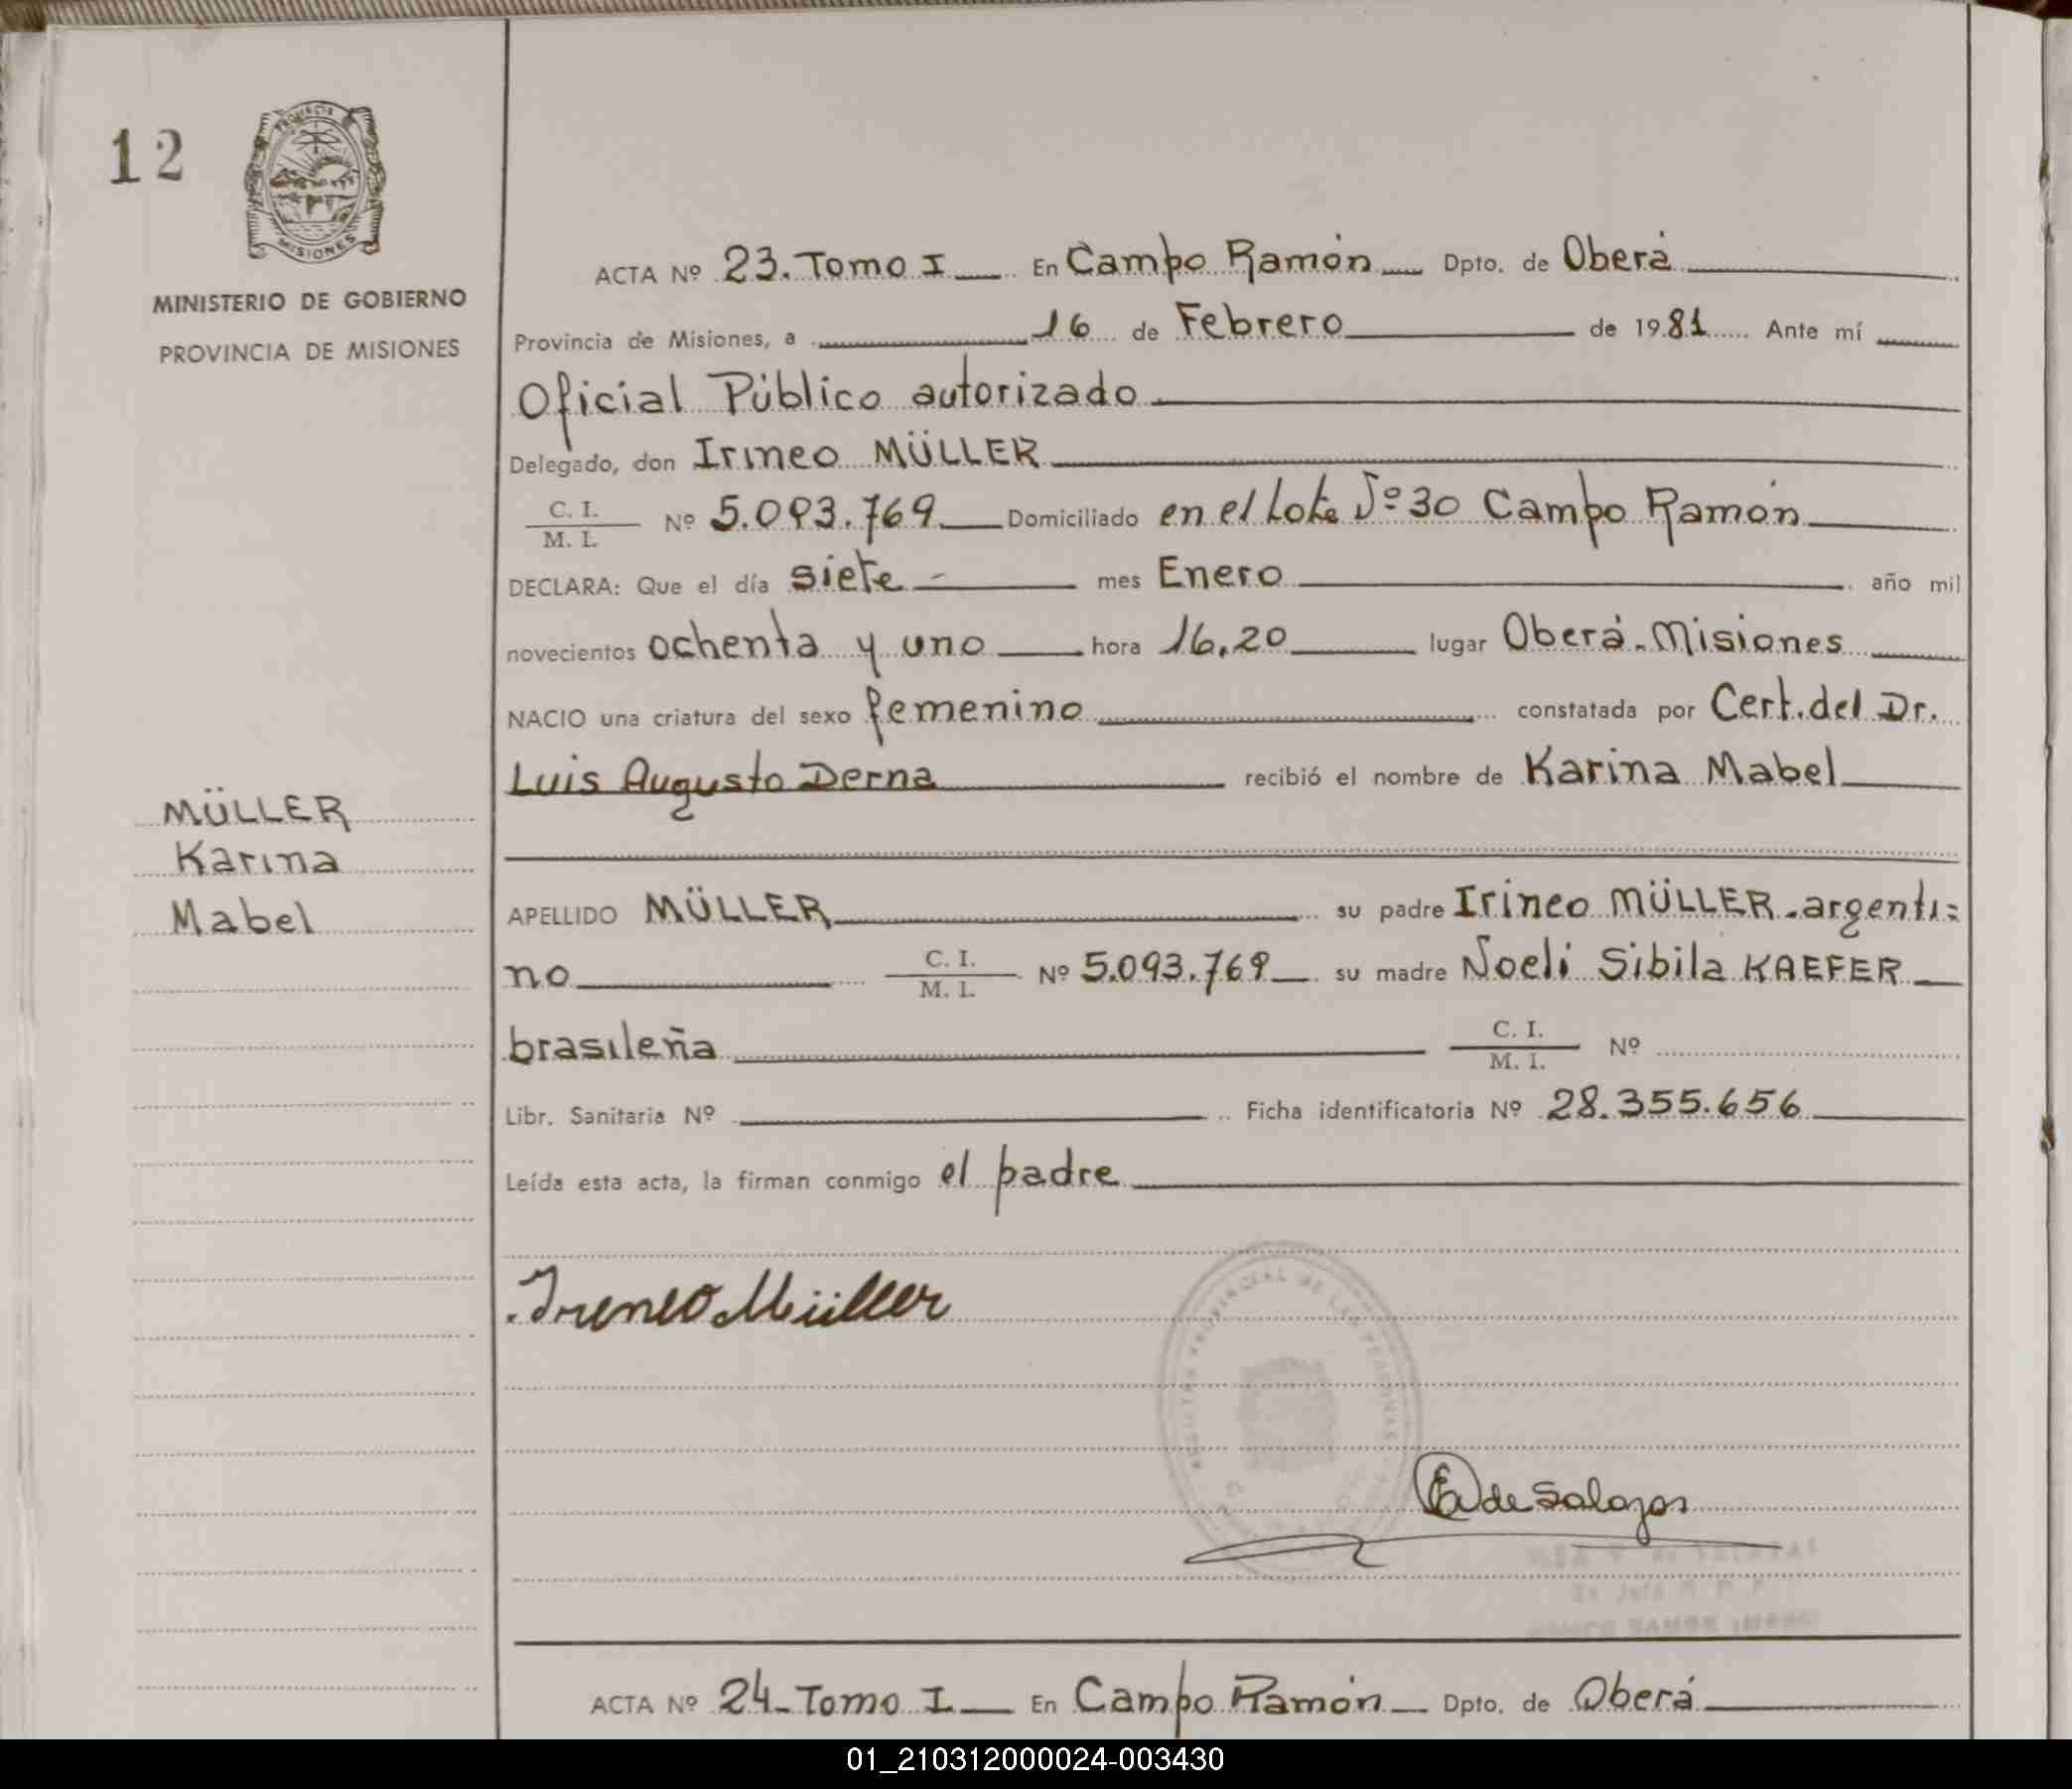 12
PROVINCIA
MISIONES
MINISTERIO DE GOBIERNO
PROVINCIA DE MISIONES
MÜLLER
Karina
Mabel
ACTA Nº 23. Tomo I En Campo Ramón Dpto. de Oberá
Provincia de Misiones, a 16 de Febrero de 1981 Ante mí
Oficial Público autorizado
Delegado, don Irineo MÜLLER
C. I.
M. I. Nº 5.093.769 Domiciliado en el Lote Nº 30 Campo Ramón
DECLARA: Que el día siete mes Enero año mil
novecientos ochenta y uno hora 16,20 lugar Oberá-Misiones
NACIO una criatura del sexo femenino constatada por Cert. del Dr.
Luis Augusto Derna recibió el nombre de Karina Mabel
APELLIDO MÜLLER su padre Irineo MÜLLER-argenti=
no C. I.
M. I. Nº 5.093.769 su madre Noeli Sibila KAEFER
brasileña C. I.
M. I. Nº
Libr. Sanitaria Nº Ficha identificatoria Nº 28.355.656
Leída esta acta, la firman conmigo el padre
Irineo Müller
PROVINCIAL DE LAS PERSONAS
de Salazar
ACTA Nº 24-Tomo I En Campo Ramón Dpto. de Oberá
01_210312000024-003430